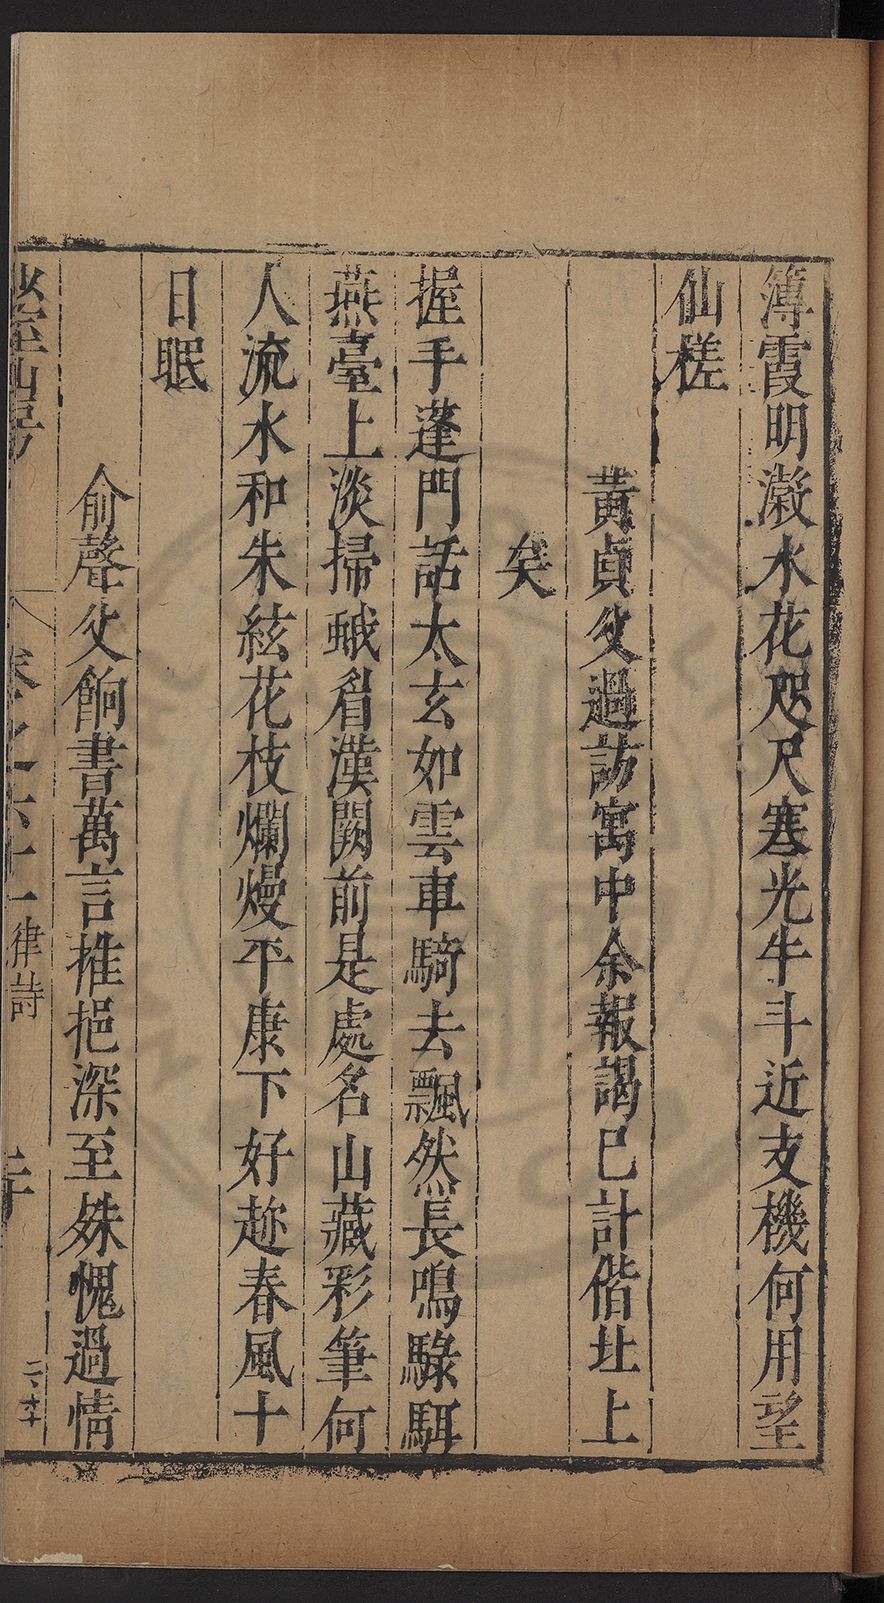 簿霞明瀫水花咫尺寒光牛斗近支機何用望
仙槎
黃貞父過訪寓中余報謁巳計偕北上
矣
握手蓬門話太玄如雲車騎去飄然長鳴騄駬
燕臺上淡掃蛾眉漢闕前是處名山藏彩筆何
人流水和朱絃花枝爛熳平康下好趂春風十
日眠
俞聲父餉書萬言推挹深至殊愧過情
少室山房
卷之六十一律詩